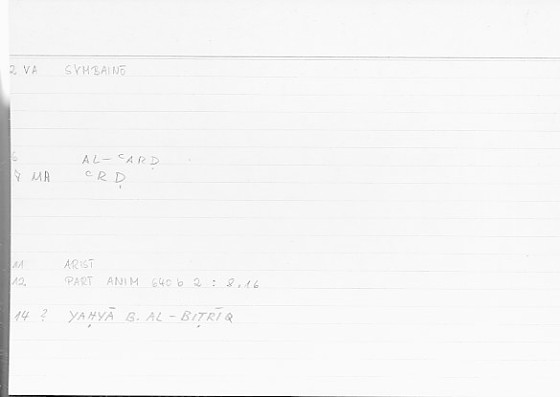 2 VA SYMBAINE
6 AL-ʿARḌ
7 MA ʿRḌ
11 ARIST
12 PART ANIM 640 b 2 : 8.16
14 ? YAḤYĀ B. AL-BIṬRĪQ